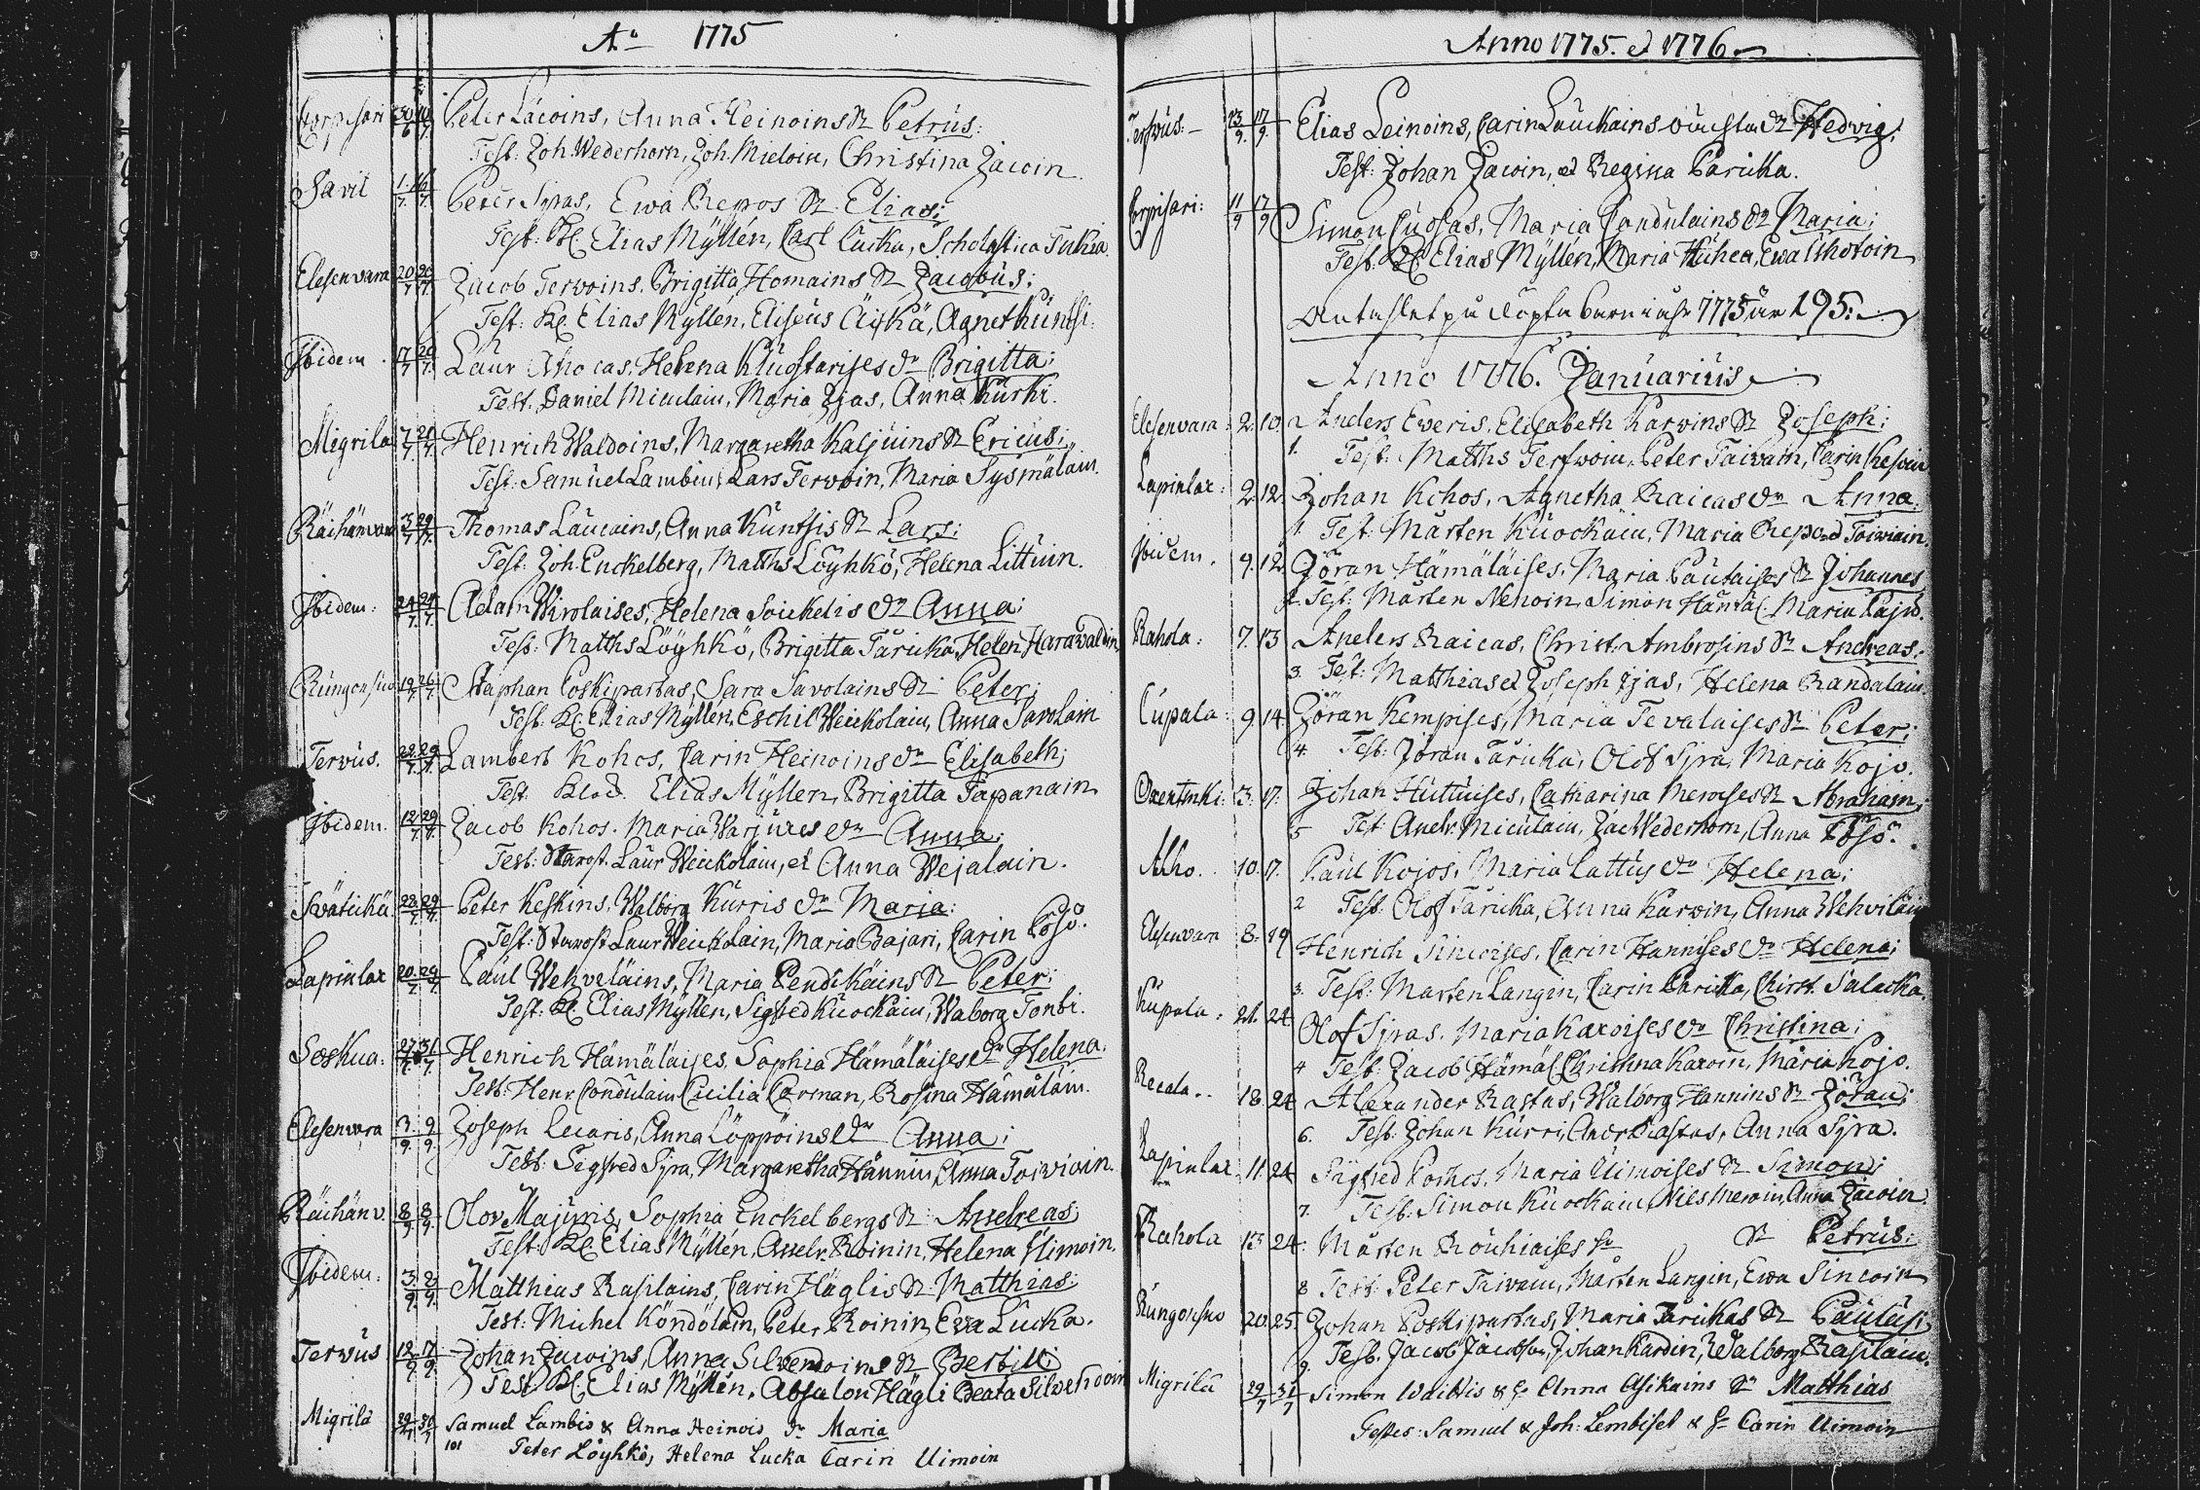 Ao 1775
Corpisari 30/6 10/7 Peter Lacoins, Anna Heinoins Sn Petrus:
Test: Joh. Wederhorn, Joh. Mieloin, Christina Jacoin.
Savit 1/7 16/7 Peter Syras, Ewa Repos Sn Elias;
Test: Kl. Elias Myllén, Carl Cucka, Scholastica Tukia.
Elesenvara 20/7 20/7 Jacob Tervoins, Brigitta Homains Sn Jacobus:
Test: Kl. Elias Myllén, Eliseus Äijkä, Agnet Kuntsi.
Ibidem. 17/7 20/7 Laur Ahocas, Helena Kluostarises dr Brigitta:
Test: Daniel Miculain, Maria Ijas, Anna Kurki.
Migrila 7/7 21/7 Henrich Waldoins, Margaretha Kaljuins Sn Ericus;
Test: Samuel Lambin, Lars Tervoin, Maria Sysmäläin.
Räihänvara 3/7 Thomas Laucains, Anna Kuntsis Sn Lars:
Test: Joh. Enckelberg, Matths Löyhkö, Helena Littuin.
Ibidem: 24/7 24/7 Adam Wirolaises, Helena Soickelis dr Anna:
Test: Matths Löyhkö, Brigitta Taricka, Helen Harawaldin
Rungonsuo 19/7 26/7 Staphan Coskipartas, Sara Savolains Sn Peter;
Test: Kl. Elias Myllén, Eschil Weickolain, Anna Savolain
Tervus. 28/7 29/7 Lambert Kohos, Carin Heinoins dr Elisabeth;
Test Elias Myllen, Brigitta Tapanain
Ibidem. 12/7 29/7 Jacob Kohos. Maria dr Anna:
Test: Starost. Laur Weickolain, et Anna Wejalain.
Svätickä. 28/7 29/7 Peter Keskins, Walborg Kurris dr Maria:
Test: Starost Laur Weickolain, Maria Bajari, Carin Cösö.
Lapinlax 20/7 29/7 Paul Wehveläins, Maria Pendikäins Sn Peter:
Test: Kl. Elias Myllén, Sigfred Kuockain, Waborg Tonbi.
Soskua: 27/7 31/7 Henrich Hämäläises, Sophia Hämäläises dr Helena.
Test: Henr. Condulain Cicilia Corman, Rosina Hämäläin.
Elesenvara 3/9 9/9 Joseph Lucaris, Anna Löppöins dr Anna:
Test: Segfred Syra, Margaretha Hännin, Anna Toiviain.
Räihänv. 8/9 8/9 Olov Majuris, Sophia Enckelbergs Sn Andreas;
Test: Kl. Elias Myllén, Andr. Roinin, Helena Uimoin.
Ibidem: 3/9 8/9 Matthias Raplains, Carin Häglis Sn Matthias:
Test: Michel Köndöläin, Peter Roinin, Eva Lucka.
Tervus 12/9 17/9 Johan Jacoins, Anna Silvendoins Sn Bertill:
Test Kl. Elias Myllén, Absalon Hägli Beata Silvendoin
Migrilä 29/7 30/7 Samuel Lambis & Anna Heinois dr Maria
101 Peter Löyhkö, Helena Lucka Carin Uimoin
Anno 1775. et 1776.
Tervus:- 13/9. 17/9. Elias Leinoins, Carin Lauckains dr Hedvig:
Test: Johan Jacoin, et Regina Paricka.
Corpisari: 11/9 17/9 Simon Maria Condulains dr Maria:
Test: Kl. Elias Myllén, Maria Ewa
Antahlet på döpta barn i åhr 1775 är 195:
Anno 1776. Januarius
Elesenvara: 2. 10. Anders Eweris, Elisabeth Karvins Sn Joseph:
1. Test: Matths Terfwoin, Peter Taivain, Carin
Lapinlax: 2. 12. Johan Kohos, Agnetha Raicas dr Anna.
1. Test: Mårten Kuockain, Maria Repo et Toiviain.
Ibidem. 9. 12. Jöran Hämäläises, Maria Pautaises Sn Johannes
2. Test: Mårten Nenoin, Simon Hämäl. Maria
Rahola: 7. 13 Anders Raicas, Christ. Ambrosins Sn Andreas:
3. Test: Matthias et Joseph Ijas, Helena Randalain.
Cupala: 9. 14. Jöran Kempises, Maria Tevalaises Sn Peter;
4. Test: Jöran Taricka, Olof Syra, Maria Kojo.
13. 17. Johan Huttuises, Catharina Meroises Sn Abraham;
5 Test: Andr. Miculain, Jac Wederhorn, Anna Cösö.
Alho. 10. 17. Paul Kojos, Maria Lattus dr Helena:
2 Test: Olof Taricka, Anna Karvin, Anna Wehviläin
Elesenvara 8. 19 Henrich Sincoises, Carin Hannises dr Helena;
3. Test: Mårten Langin, Carin Paricka, Christ. Salacka.
Kupala. 21. 24 Olof Syras, Maria Karoises dr Christina:
4 Test: Jacob Hämäl. Christina Karoin, Maria Kojo.
Recala.. 18. 24 Alexander Rastas, Walborg Hannins Sn Jöran;
6. Test: Johan Kurri, Andr Rastas, Anna Syra.
Lapinlax 11. 24 Sigfred Maria Uimoises Sn Simon;
7. Test: Simon Kuockain, Nils Meroin, Anna Jacoin.
Rahola 13. 24. Mårten Rouhiaises Sn Petrus:
8 Test: Peter Taivain, Mårten Langin, Ewa Sincoin
Rungonsuo 20. 25. Johan Coskipartas, Maria Tarickas Sn Paulus;
9. Test: Jacob Johan Kardin, Walborg Raplain.
Migrilä 29/7 31/7 Simon Waittis & h. Anna Asikains Sn Matthias
Testes: Samuel & Joh: Lembiset & h. Carin Uimoin